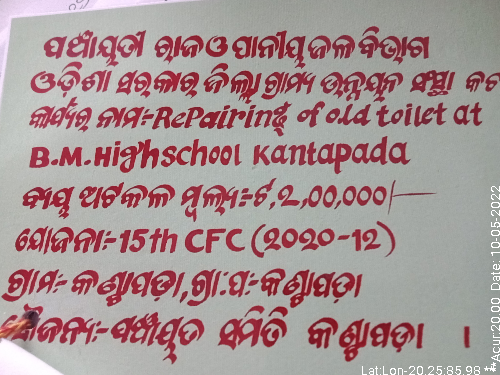 ପଞ୍ଚାୟତୀ ରାଜ ଓ ପାନୀୟ ଜଳ ବିଭାଗ
ଓଡ଼ିଶା ସରକାର ଜିଲ୍ଲା ଗ୍ରାମ୍ୟ ଉନ୍ନୟନ ସଂସ୍ଥା କଟ
କାର୍ଯ୍ୟର ନାମ:- Repairing of old toilet at
B.M. High school Kantapada
ବ୍ୟୟ ଅଟକଳ ମୂଲ୍ୟ:- ଟ.2,00,000/-
ଯୋଜନା:- 15th CFC (2020-12)
ଗ୍ରାମ:- କଣ୍ଟାପଡ଼ା, ଗ୍ରା:ପ:- କଣ୍ଟାପଡ଼ା
ସୌଜନ୍ୟ:- ପଞ୍ଚାୟତ ସମିତି କଣ୍ଟାପଡ଼ା ।
Lat:Lon-20.25:85.98 ***Acur:20.00 Date: 10-05-2022